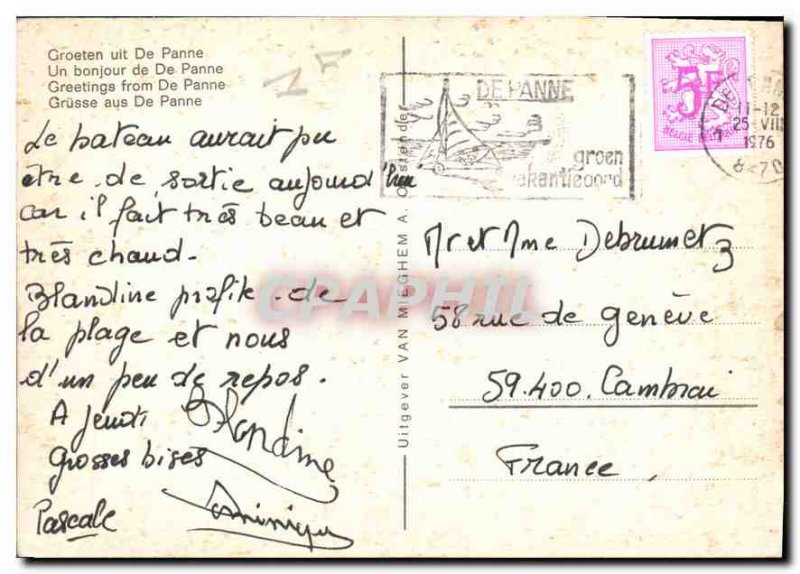 Groeten uit De Panne
Un bonjour de De Panne
Greetings from De Panne
Grüsse aus De Panne
Le bateau aurait pu
être de sortie aujourd'hui
car il fait très beau et
très chaud.
Blandine profite de
la plage et nous
d'un peu de repos.
A jeudi
Grosses bises
Pascale
Blandine
Dominique
Uitgever VAN MIEGHEM A. Oostende
DE PANNE
groen
vakantieoord
5F
BELGIE
11-12
25-VIII
1976
Mr et Mme Debrumetz
58 rue de genève
59.400. Cambrai
France
CPAPHIL